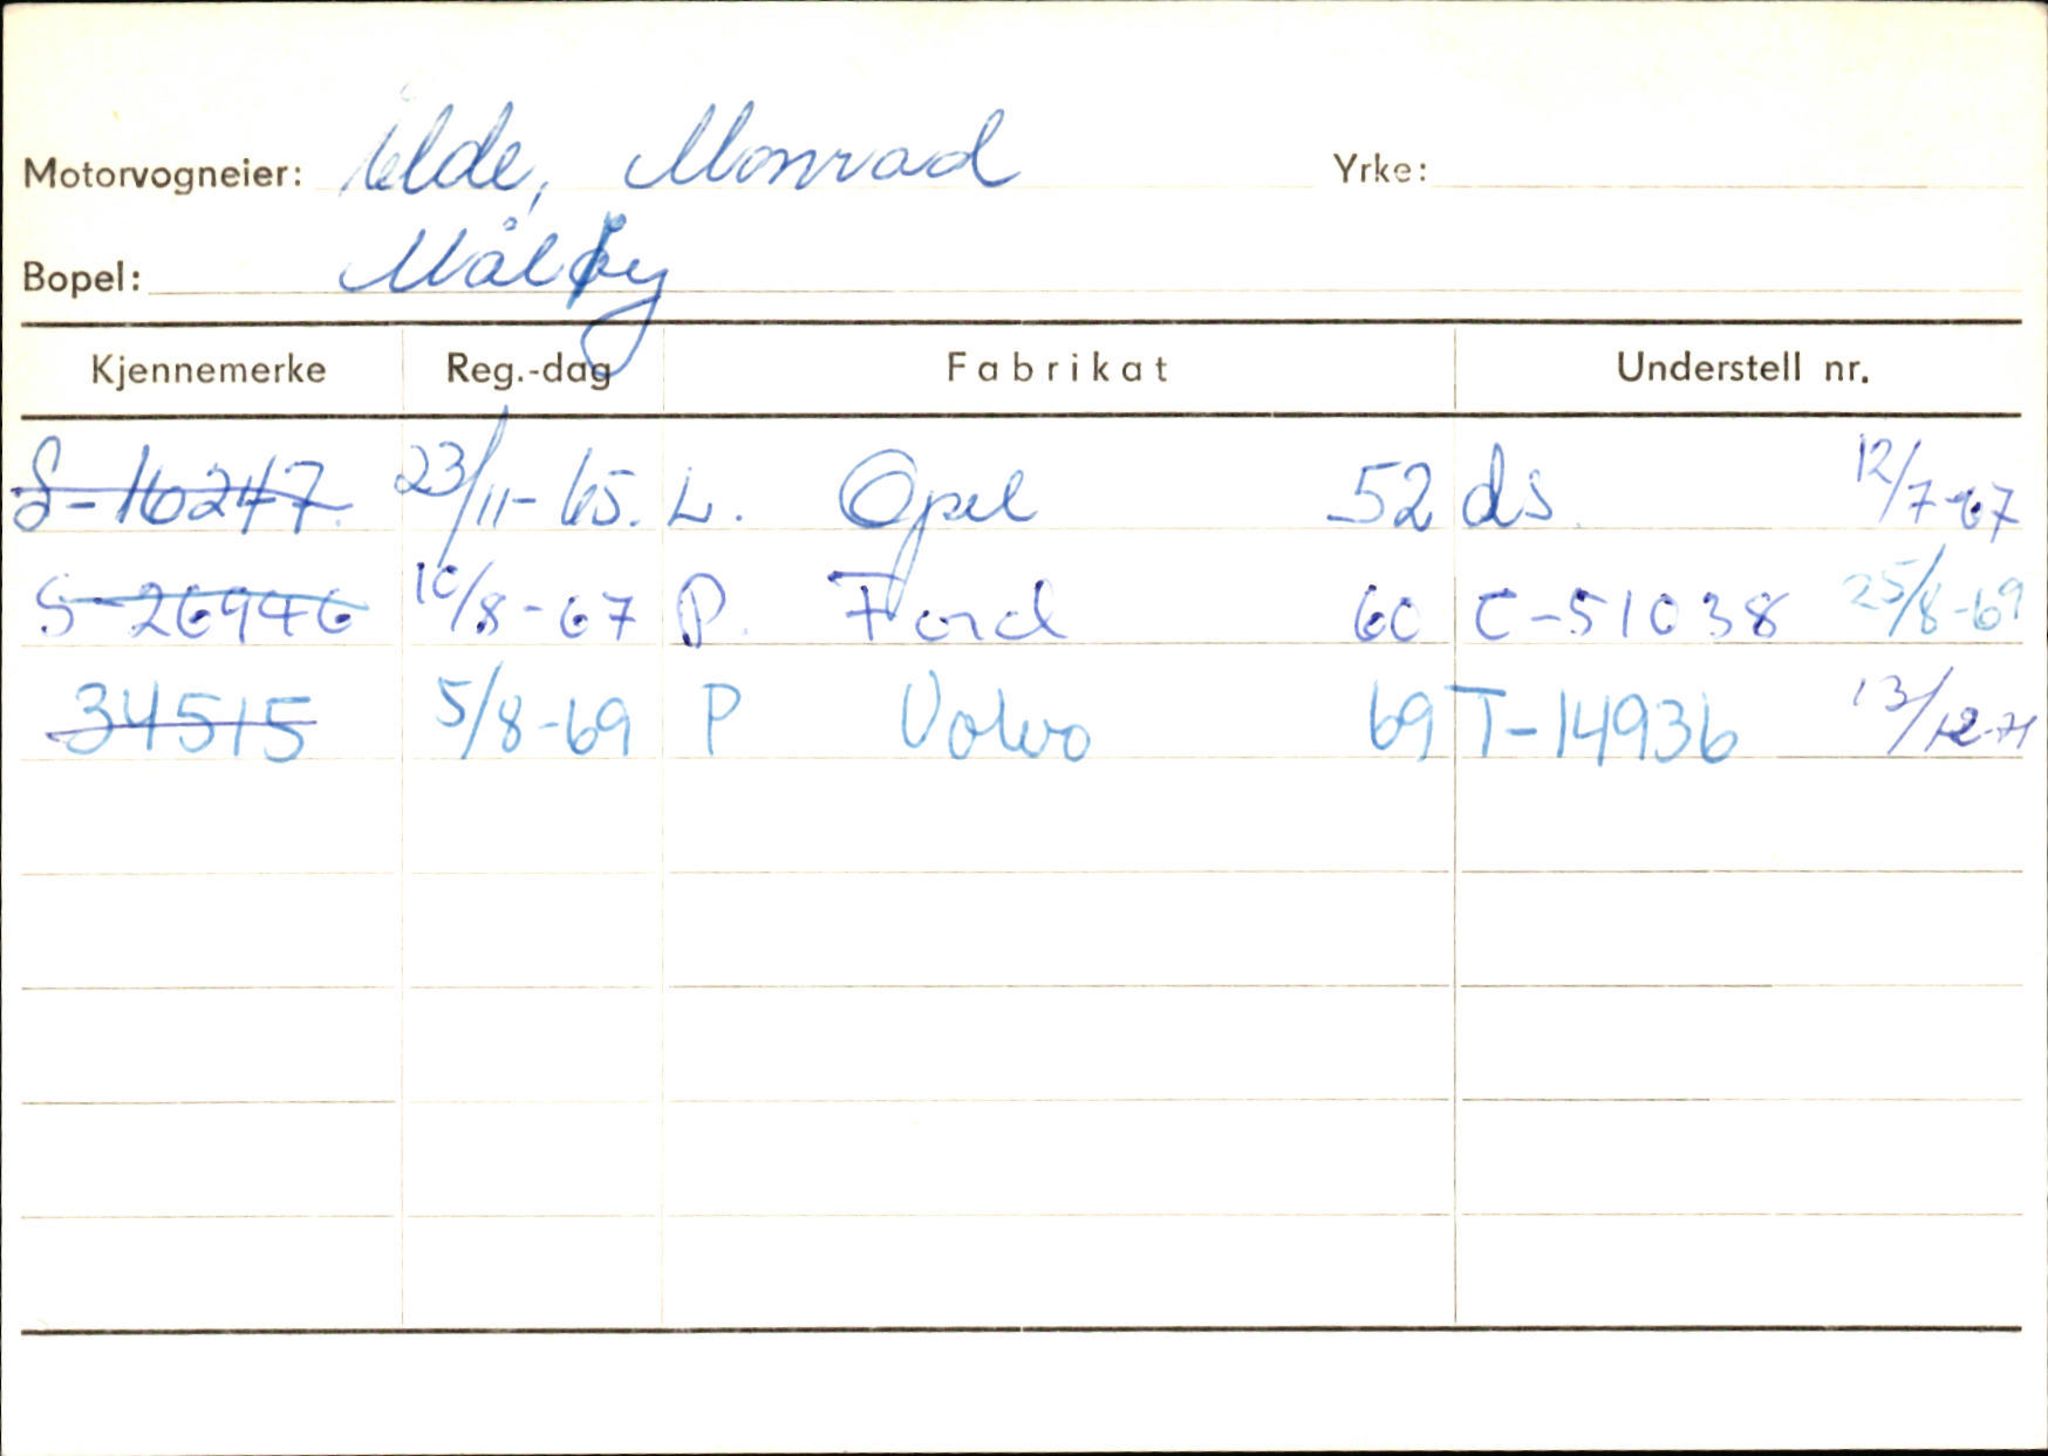 Motorvogneier: Ulde, Monrad Yrke:
Bopel:
Kjennemerke Reg.-dag Fabrikat Understell nr.
S-16247. 23/11-65. L. Opel 52 ds. 12/7-67
S-26946 10/8-67 P. Ford 60 C-51038 25/8-69
34515 5/8-69 P Volvo 69 T-14936 13/12-71